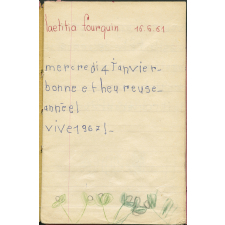 laetitia fourquin 15.6.61
mercredi 4 Janvier-
bonne et heureuse-
année!
vive 1967!-